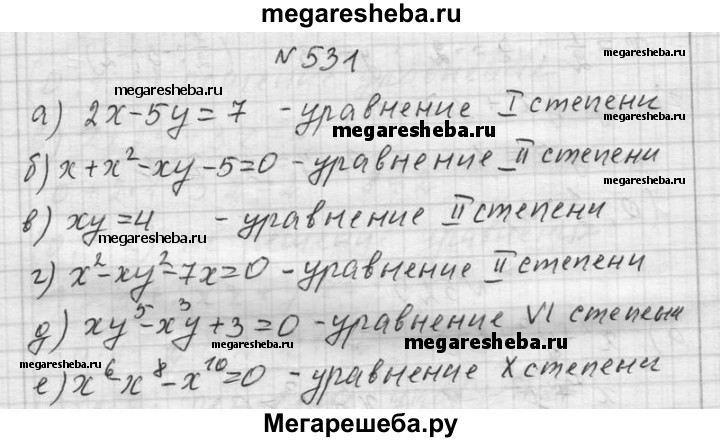 megaresheba.ru
№ 531
megaresheba.ru
megaresheba.ru
а) 2x-5y=7 - уравнение I степени
megaresheba.ru
б) x+x²-xy-5=0 - уравнение II степени
в) xy=4 - уравнение II степени
megaresheba.ru
megaresheba.ru
г) x²-xy²-7x=0 - уравнение II степени
д) xy⁵-x³y+3=0 - уравнение VI степени
megaresheba.ru
megaresheba.ru
е) x⁶-x⁸-x¹⁰=0 - уравнение X степени
Мегарешеба.ру